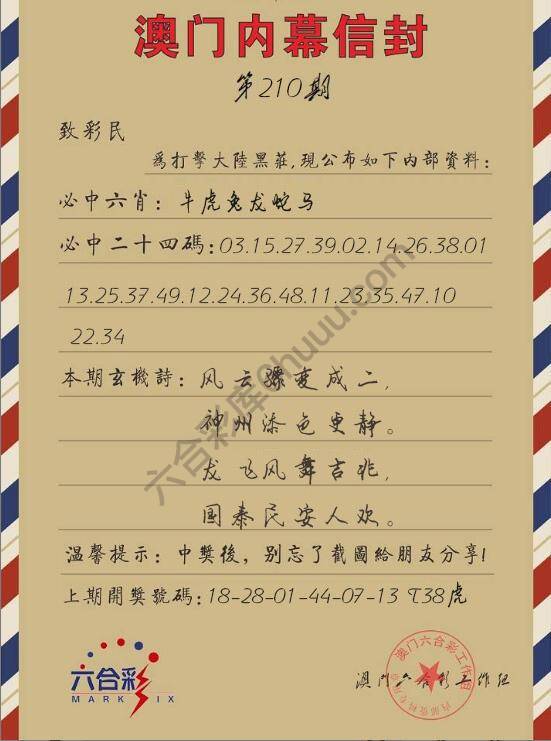 澳门内幕信封
第210期
致彩民
為打擊大陸黑莊,現公布如下内部資料:
必中六肖: 牛虎兔龙蛇马
必中二十四碼:03.15.27.39.02.14.26.38.01
13.25.37.49.12.24.36.48.11.23.35.47.10
22.34
本期玄機詩: 风云骤变成二,
神州漆色更静。
龙飞风舞吉兆,
国泰民安人欢。
温馨提示: 中獎後, 别忘了截圖給朋友分享!
上期開獎號碼:18-28-01-44-07-13 T38虎
六合彩
MARK SIX
澳门六合彩工作组
澳门六合彩工作组
六合彩库6huuu.com